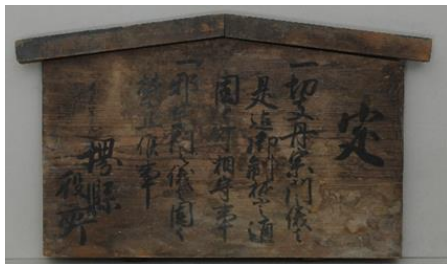 定
一切支丹宗門之儀者
是迄御制禁之通
固く可相守事
一邪宗門之儀者固く
禁止候事
堺縣
役所